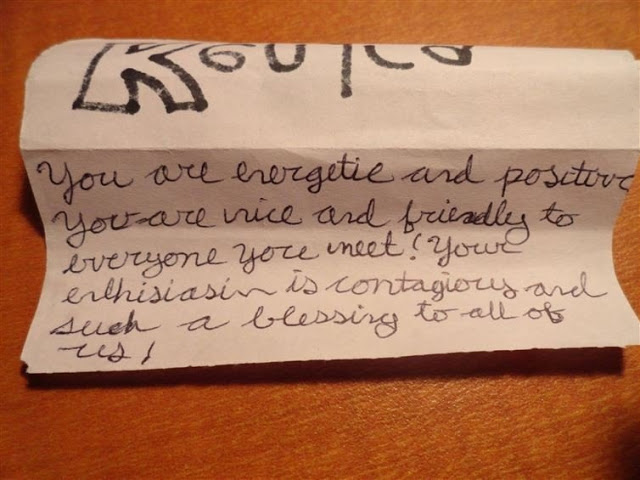 You are energetic and positive
You are nice and friendly to
everyone you meet! Your
enthisiasim is contagious and
such a blessing to all of
us!